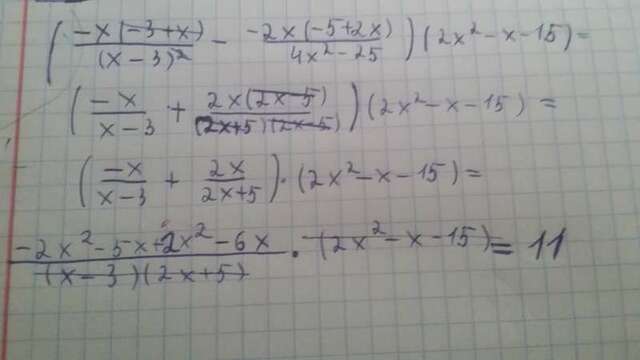 ( -x(-3+x)/(x-3)² - -2x(-5+2x)/4x²-25 ) (2x²-x-15) =
( -x/x-3 + 2x(2x-5)/(2x+5)(2x-5) ) (2x²-x-15) =
( -x/x-3 + 2x/2x+5 ) · (2x²-x-15) =
-2x²-5x+2x²-6x/(x-3)(2x+5) · (2x²-x-15) = 11